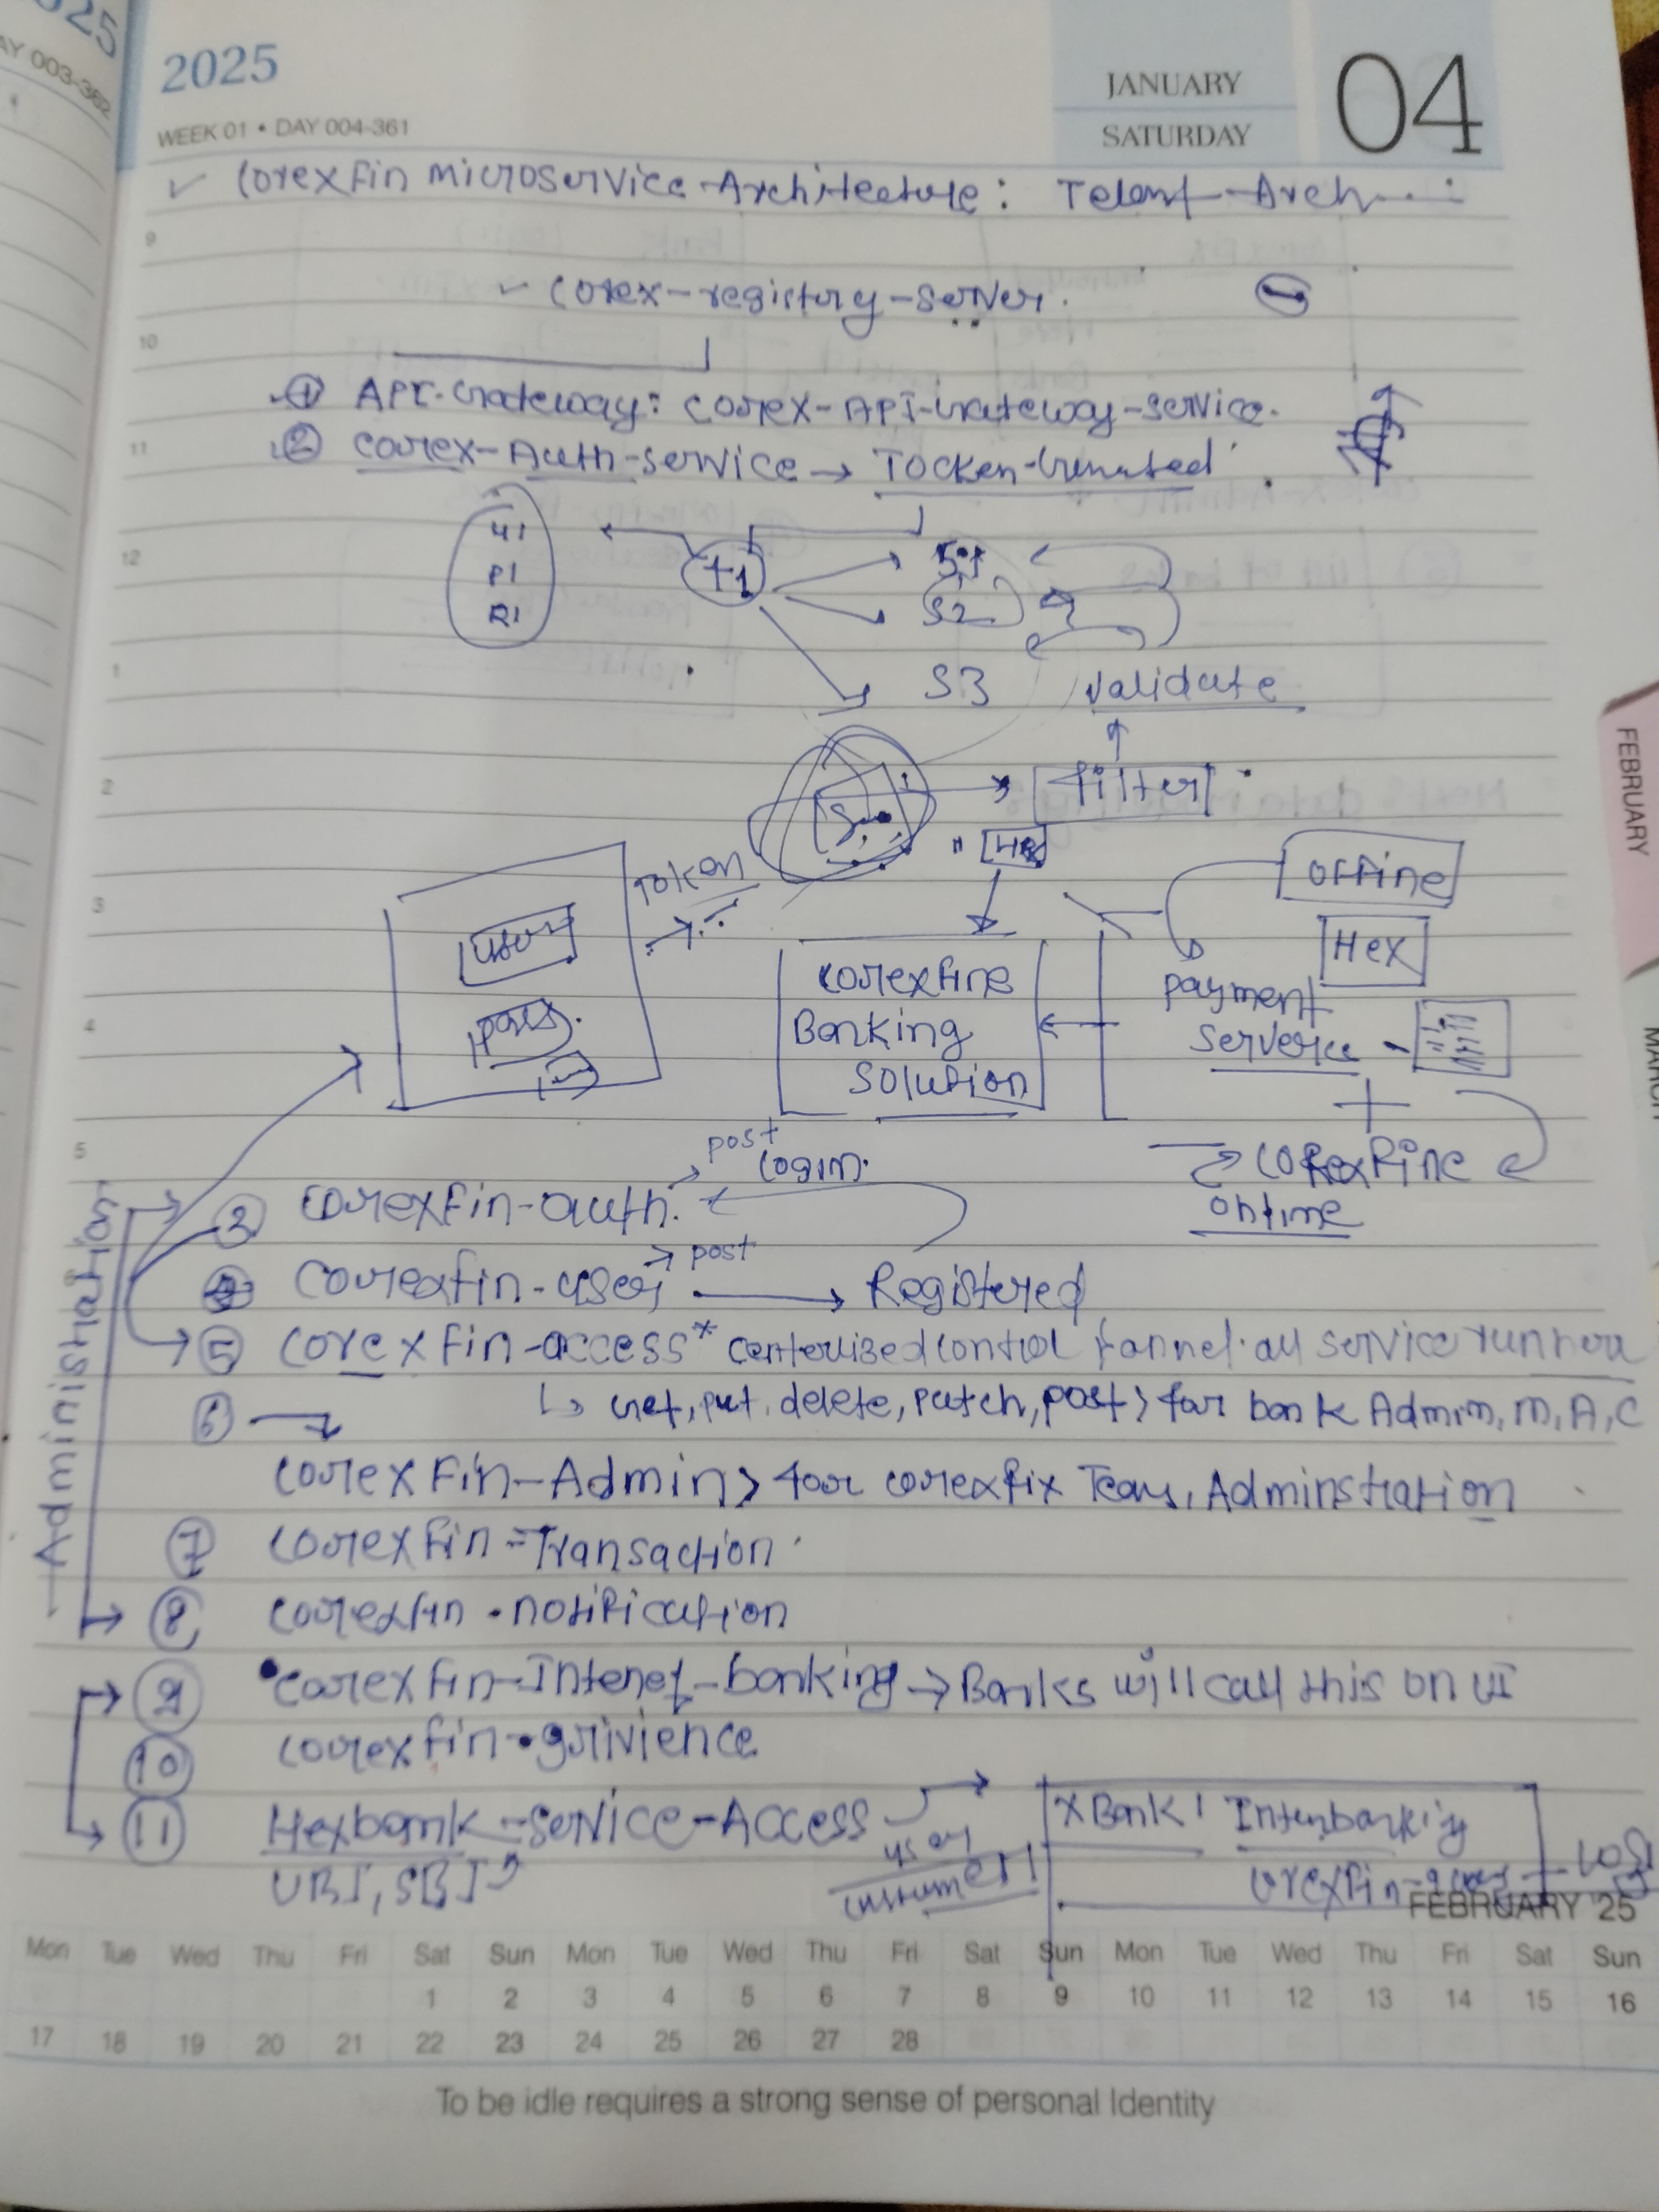 2025
WEEK 01 • DAY 004-361
JANUARY
SATURDAY
04
2025
AY 003-362
Corexfin microservice-Architecture: Telent-Arch
corex-registry-server.
① API-Gateway: corex-API-Gateway-service.
② corex-Auth-service → Tocken-Genrated
U1
P1
R1
t1
S1
S2
S3
validate
filter
Token
user
pass
Offine
Hex
corexfine
Banking
Solution
payment
Serverice
+
corexfine
ontime
post
login.
③ corexfin-auth.
post
④ corexfin-user → Registered
⑤ corexfin-access* centerlized control fannel. all service runner
↳ Get, put, delete, patch, post > for bank Admin, M, A, C
⑥ →
corexFin-Admin > for corexfix Team, Adminstration
⑦ corexfin=Transaction
⑧ corexfin.notification
Administration
⑨ corexfin-Internet-banking → Banks will call this on UI
⑩ corexfin.grivience
⑪ Hexbank-service-Access
UBI, SBI
XBank
Interbanking
FEBRUARY
MARCH
FEBRUARY '25
Mon Tue Wed Thu Fri Sat Sun Mon Tue Wed Thu Fri Sat Sun Mon Tue Wed Thu Fri Sat Sun
1 2 3 4 5 6 7 8 9 10 11 12 13 14 15 16
17 18 19 20 21 22 23 24 25 26 27 28
To be idle requires a strong sense of personal Identity
9
10
11
12
1
2
3
4
5